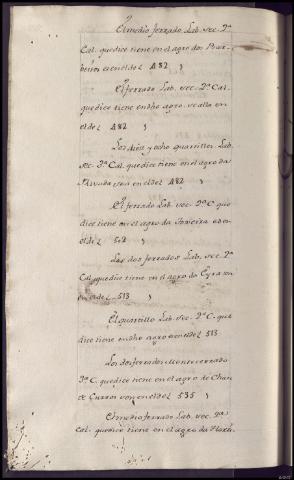 El medio ferrado Lab. sec. 2ª
Cal. que dice tiene en el agro dos
beiros es en el de 482
El ferrado Lab. sec. 2ª Cal.
que dice tiene en dho agro
el de 482
Los diez y ocho quartillos Lab.
sec. 3ª Cal. que dice tiene en el agro da
en el de 482
El ferrado Lab. sec. 2ª C. que
dice tiene en el agro da
el de
Los dos ferrados Lab. sec. 2ª
Cal. que dice tiene en el agro da Eyra son
en el de 513
El quartillo Lab. sec. 2ª C. que
dice tiene en dho agro es en el de 513
Los dos ferrados Monte cerrado
3ª C. que dice tiene en el agro de Chan
de Curros son en el de 535
El medio ferrado Lab. sec.
Cal. que dice tiene en el agro da